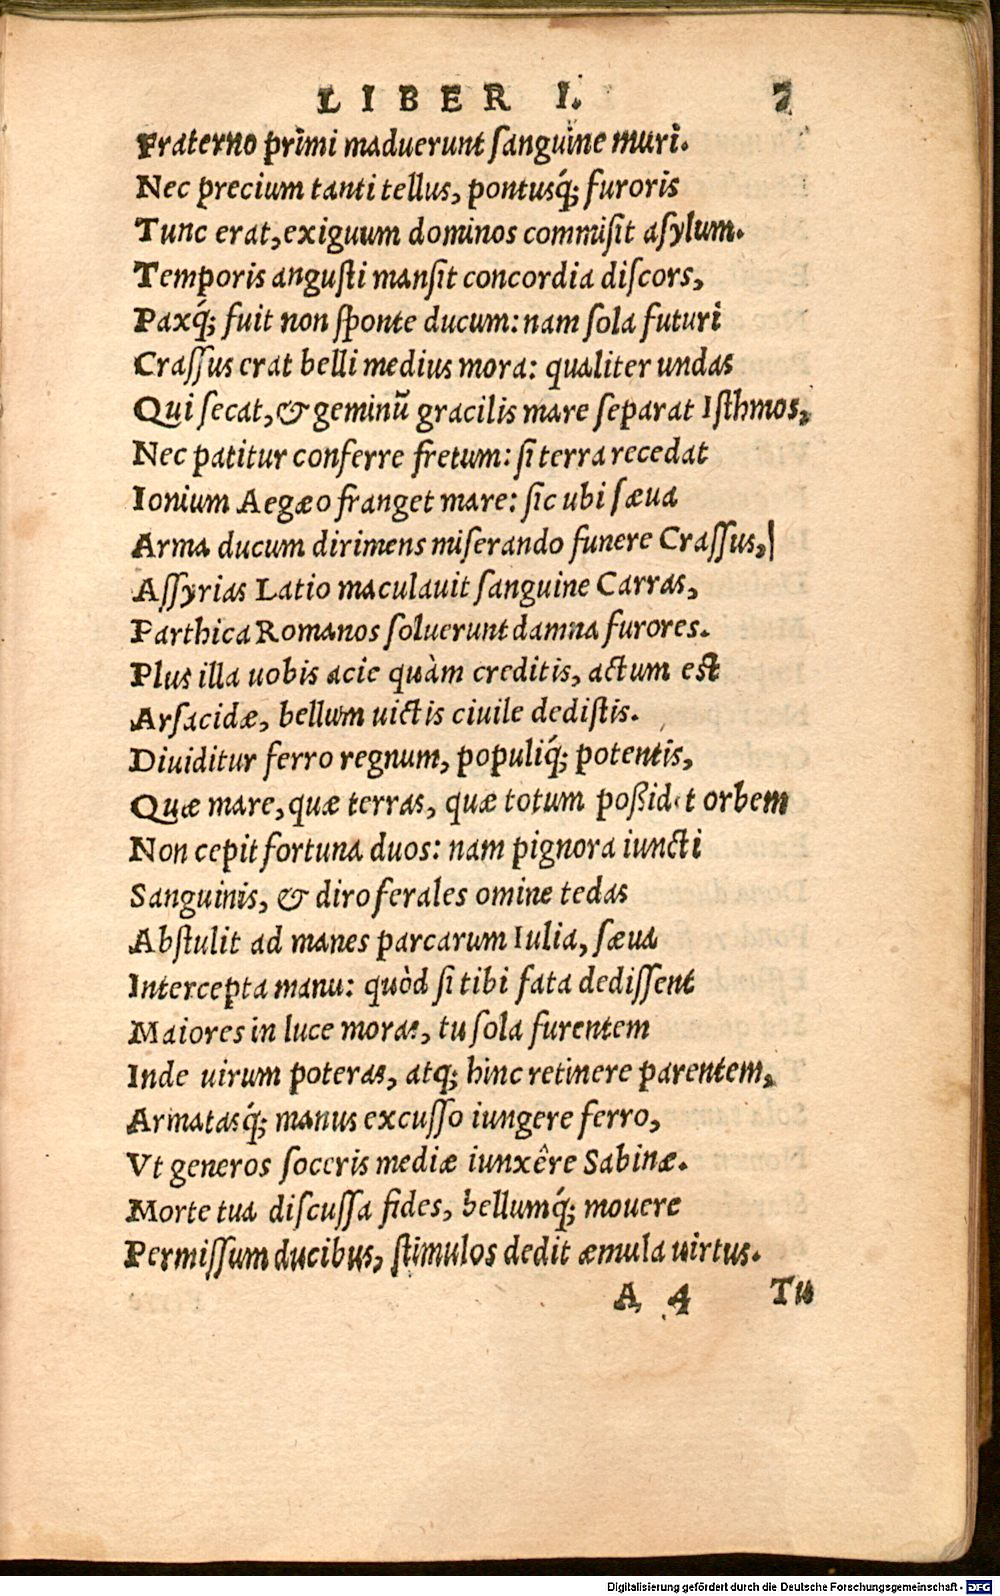 LIBER I. 7
Fraterno primi maduerunt sanguine muri.
Nec precium tanti tellus, pontusq́; furoris
Tunc erat, exiguum dominos commisit asylum.
Temporis angusti mansit concordia discors,
Paxq́; fuit non sponte ducum: nam sola futuri
Crassus erat belli medius mora: qualiter undas
Qui secat, & geminū gracilis mare separat Isthmos,
Nec patitur conferre fretum: si terra recedat
Ionium Aegæo franget mare: sic ubi sæua
Arma ducum dirimens miserando funere Crassus,
Assyrias Latio maculauit sanguine Carras,
Parthica Romanos soluerunt damna furores.
Plus illa uobis acie quàm creditis, actum est
Arsacidæ, bellum uictis ciuile dedistis.
Diuiditur ferro regnum, populiq́; potentis,
Quæ mare, quæ terras, quæ totum possidet orbem
Non cepit fortuna duos: nam pignora iuncti
Sanguinis, & diro ferales omine tedas
Abstulit ad manes parcarum Iulia, sæua
Intercepta manu: quòd si tibi fata dedissent
Maiores in luce moras, tu sola furentem
Inde uirum poteras, atq; hinc retinere parentem,
Armatasq́; manus excusso iungere ferro,
Vt generos soceris mediæ iunxêre Sabinæ.
Morte tua discussa fides, bellumq́; mouere
Permissum ducibus, stimulos dedit æmula uirtus.
A 4 Tu
Digitalisierung gefördert durch die Deutsche Forschungsgemeinschaft - DFG